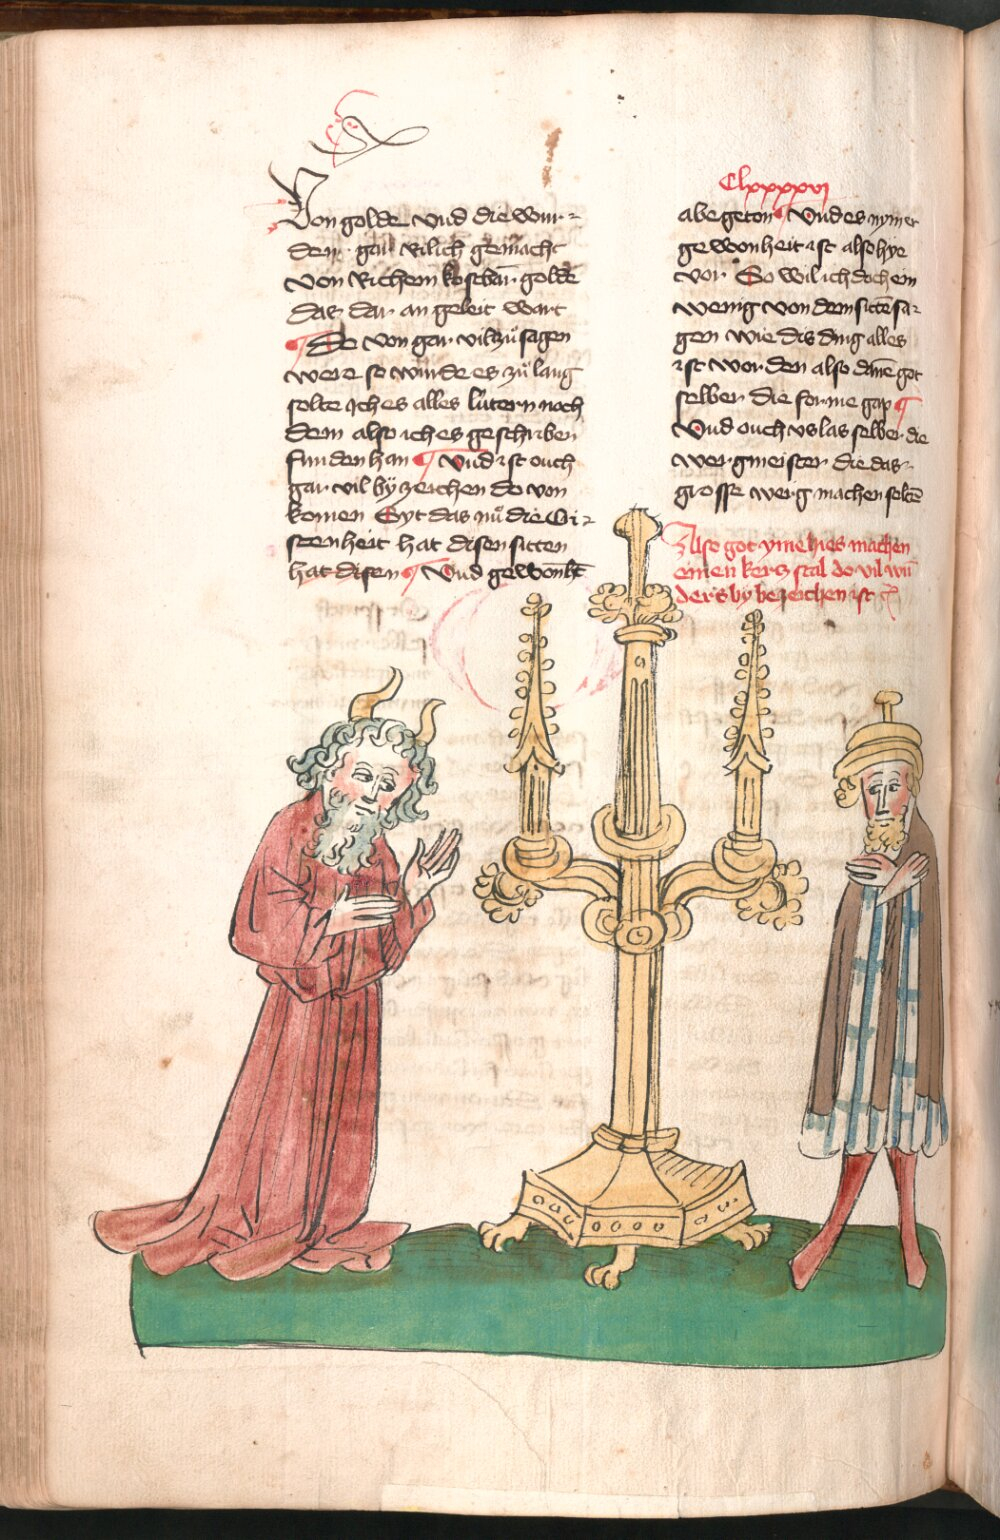 Von golde vnd die wur-
den gar rilich gemacht
von richem kosbar golde
das dar an geleit wart
¶ Do von gar vil zů sagen
were so wurde es zů lang
solte ich es alles lútern noch
dem also ich es geschriben
funden han ¶ Vnd ist ouch
gar vil by zeichen do von
komen Syt das nů die Cri-
stenheit hat disen sitten
hat disen ¶ Vnd gewonht
Clxxxxvj
abe geton Vnd es nymer
gewonheit ist also hye
vor So wil ich doch ein
wenig von dem sitte sa-
gen wie dis ding alles
ist worden also dāne got
selber die forme gap ¶
Vnd ouch vslas selber die
wergmeister die das
grosse werg machen soltē
Also got yme hies machen
einen kerzstal do vil wū
ders by bezeichen ist